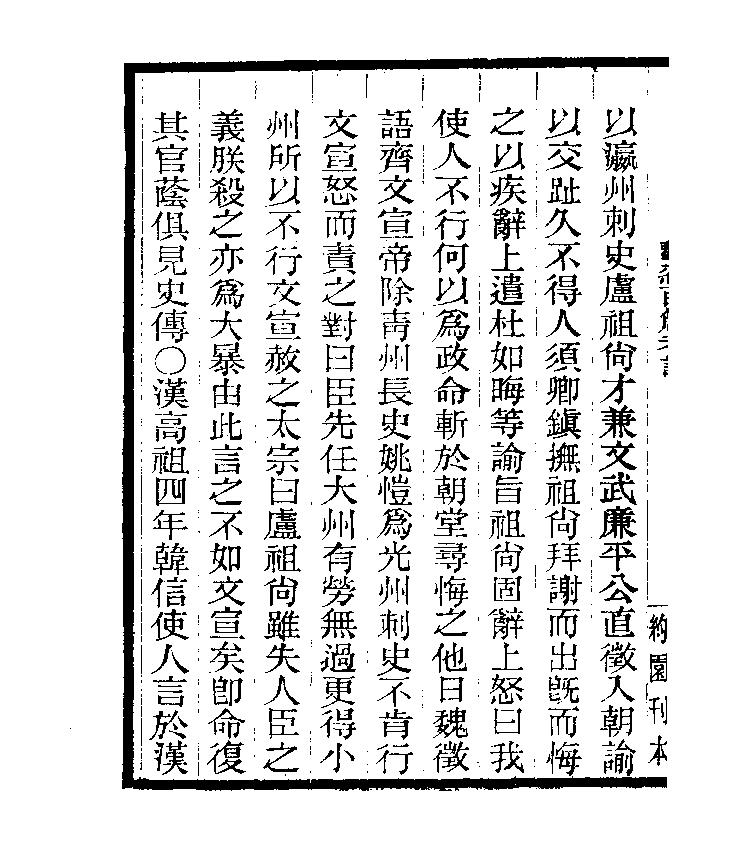 以瀛州刺史盧祖尙才兼文武廉平公直徵入朝諭
以交趾久不得人須卿鎭撫祖尙拜謝而出旣而悔
之以疾辭上遣杜如晦等諭旨祖尙固辭上怒曰我
使人不行何以爲政命斬於朝堂尋悔之他日魏徵
語齊文宣帝除靑州長史姚愷爲光州刺史不肯行
文宣怒而責之對曰臣先任大州有勞無過更得小
州所以不行文宣赦之太宗曰盧祖尙雖失人臣之
義朕殺之亦爲大暴由此言之不如文宣矣卽命復
其官蔭俱見史傳〇漢高祖四年韓信使人言於漢
約園刊本